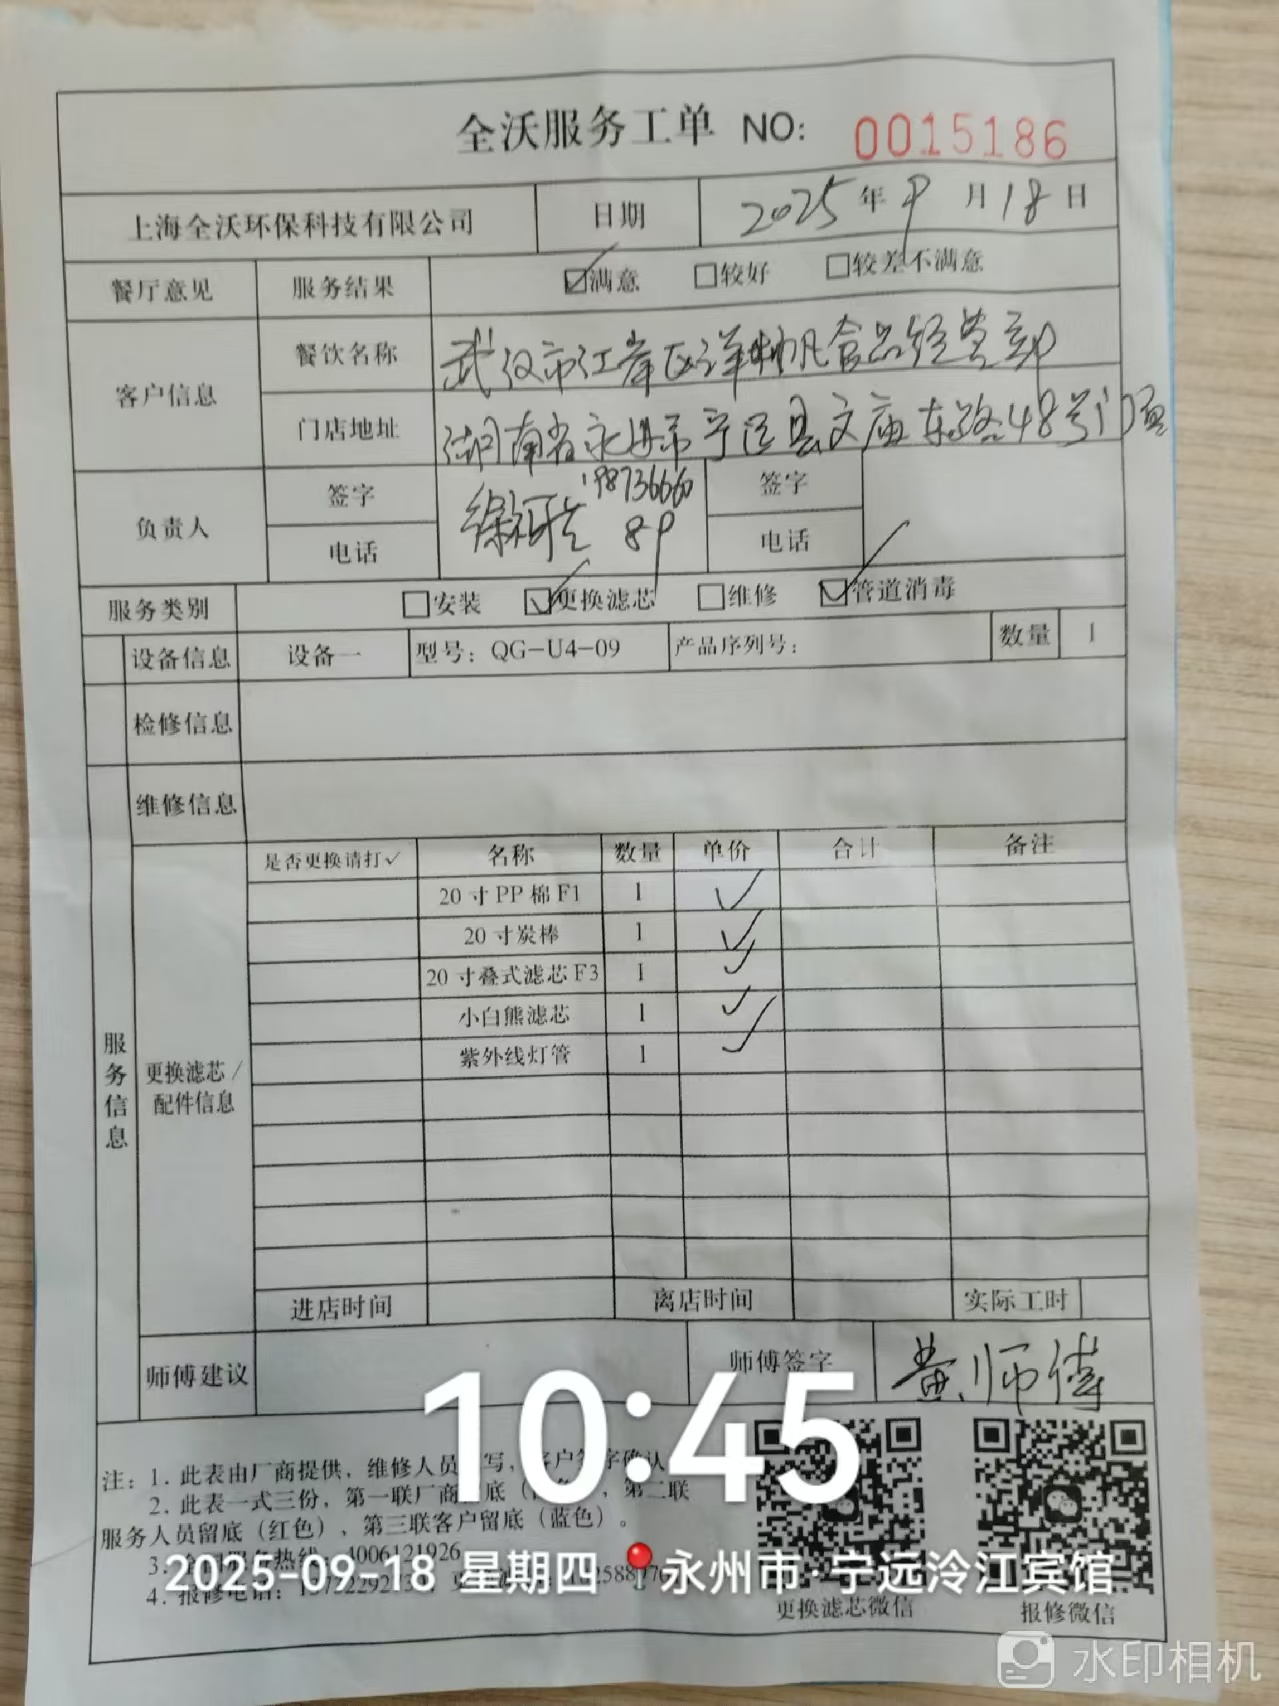 全沃服务工单 NO: 0015186
上海全沃环保科技有限公司 日期 2025年9月18日
餐厅意见 服务结果 ☑满意 □较好 □较差不满意
客户信息 餐饮名称 武汉市江岸区洋 食品经营部
门店地址 湖南省永州市宁远县文庙东路48号门面
负责人 签字 徐 1987366660 签字
电话 89 电话
服务类别 □安装 ☑更换滤芯 □维修 ☑管道消毒
设备信息 设备一 型号：QG-U4-09 产品序列号： 数量 1
检修信息
维修信息
服务信息
更换滤芯/配件信息
是否更换请打✓ 名称 数量 单价 合计 备注
20寸PP棉F1 1 ✓
20寸炭棒 1 ✓
20寸叠式滤芯F3 1 ✓
小白熊滤芯 1 ✓
紫外线灯管 1 ✓
进店时间 离店时间 实际工时
师傅建议 师傅签字 黄师傅
注：1. 此表由厂商提供，维修人员 写，客户签字确认
2. 此表一式三份，第一联厂商 底（ ），第二联
服务人员留底（红色），第三联客户留底（蓝色）。
3. 服务热线 4006121926
4. 报修电话：
更换滤芯微信 报修微信
10:45
2025-09-18 星期四 永州市·宁远泠江宾馆
水印相机